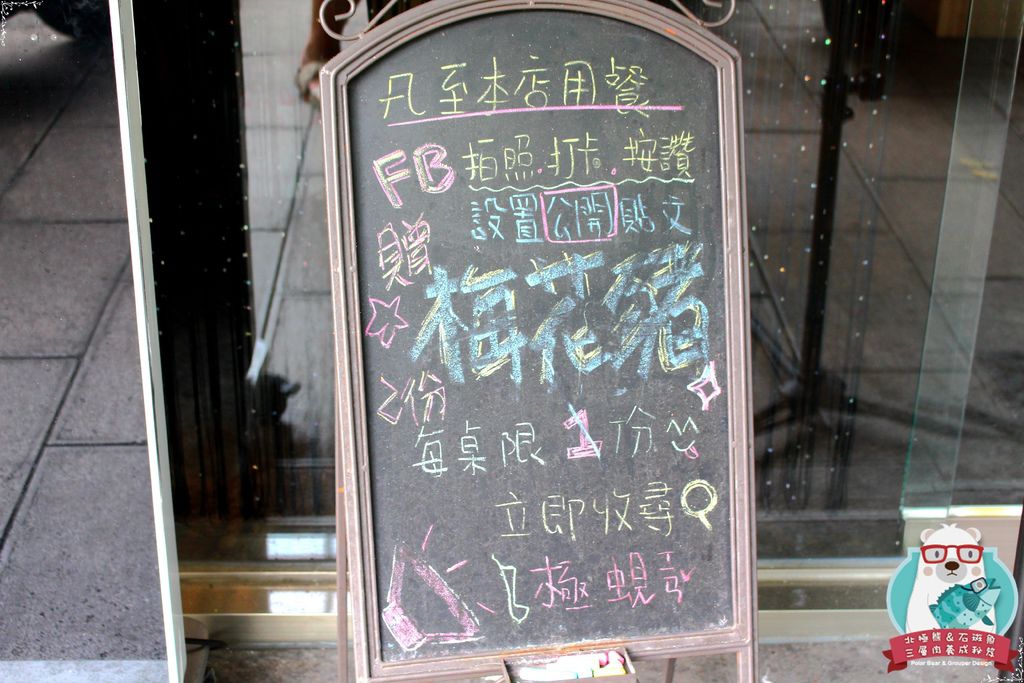 凡至本店用餐
FB 拍照.打卡.按讚
設置公開貼文
贈
梅花豬
2份
每桌限1份
立即收尋
極蜆
北極熊&石斑魚
三層肉養成秘笈
Polar Bear & Grouper Design